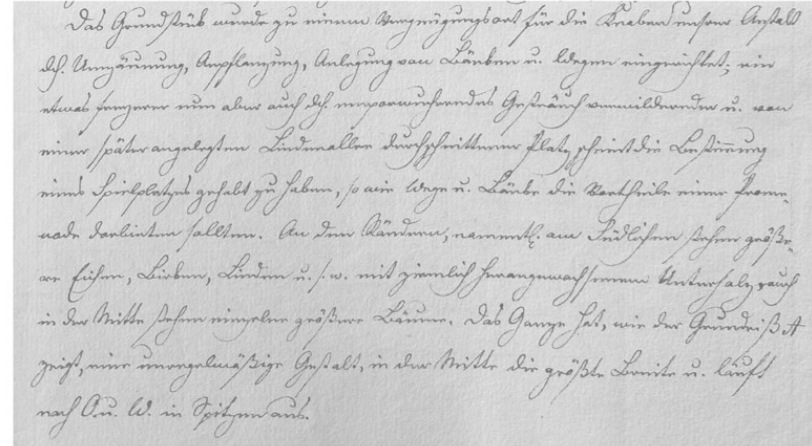 Das Grundstück wurde zu einem Vergnügungsort für die Knaben unserer Anstalt
dch. Umzäunung, Anpflanzung, Anlegung von Bänken u. Wegen eingerichtet; ein
etwas freierer nun aber auch dch. emporwucherndes Gesträuch verwildernder u. von
einer später angelegten Lindenallee durchschnittener Platz scheint die Bestimmung
eines Spielplatzes gehabt zu haben, so wie Wege u. Bänke die Vortheile einer Prome-
nade darbieten sollten. An den Rändern, namentl. am Südlichen stehen größe-
re Eichen, Birken, Linden u. s. w. mit ziemlich herangewachsenem Unterholz, auch
in der Mitte stehen einzelne größere Bäume. Das Ganze hat, wie der Grundriß A
zeigt, eine unregelmäßige Gestalt, in der Mitte die größte Breite u. läuft
nach O. u. W. in Spitzen aus.